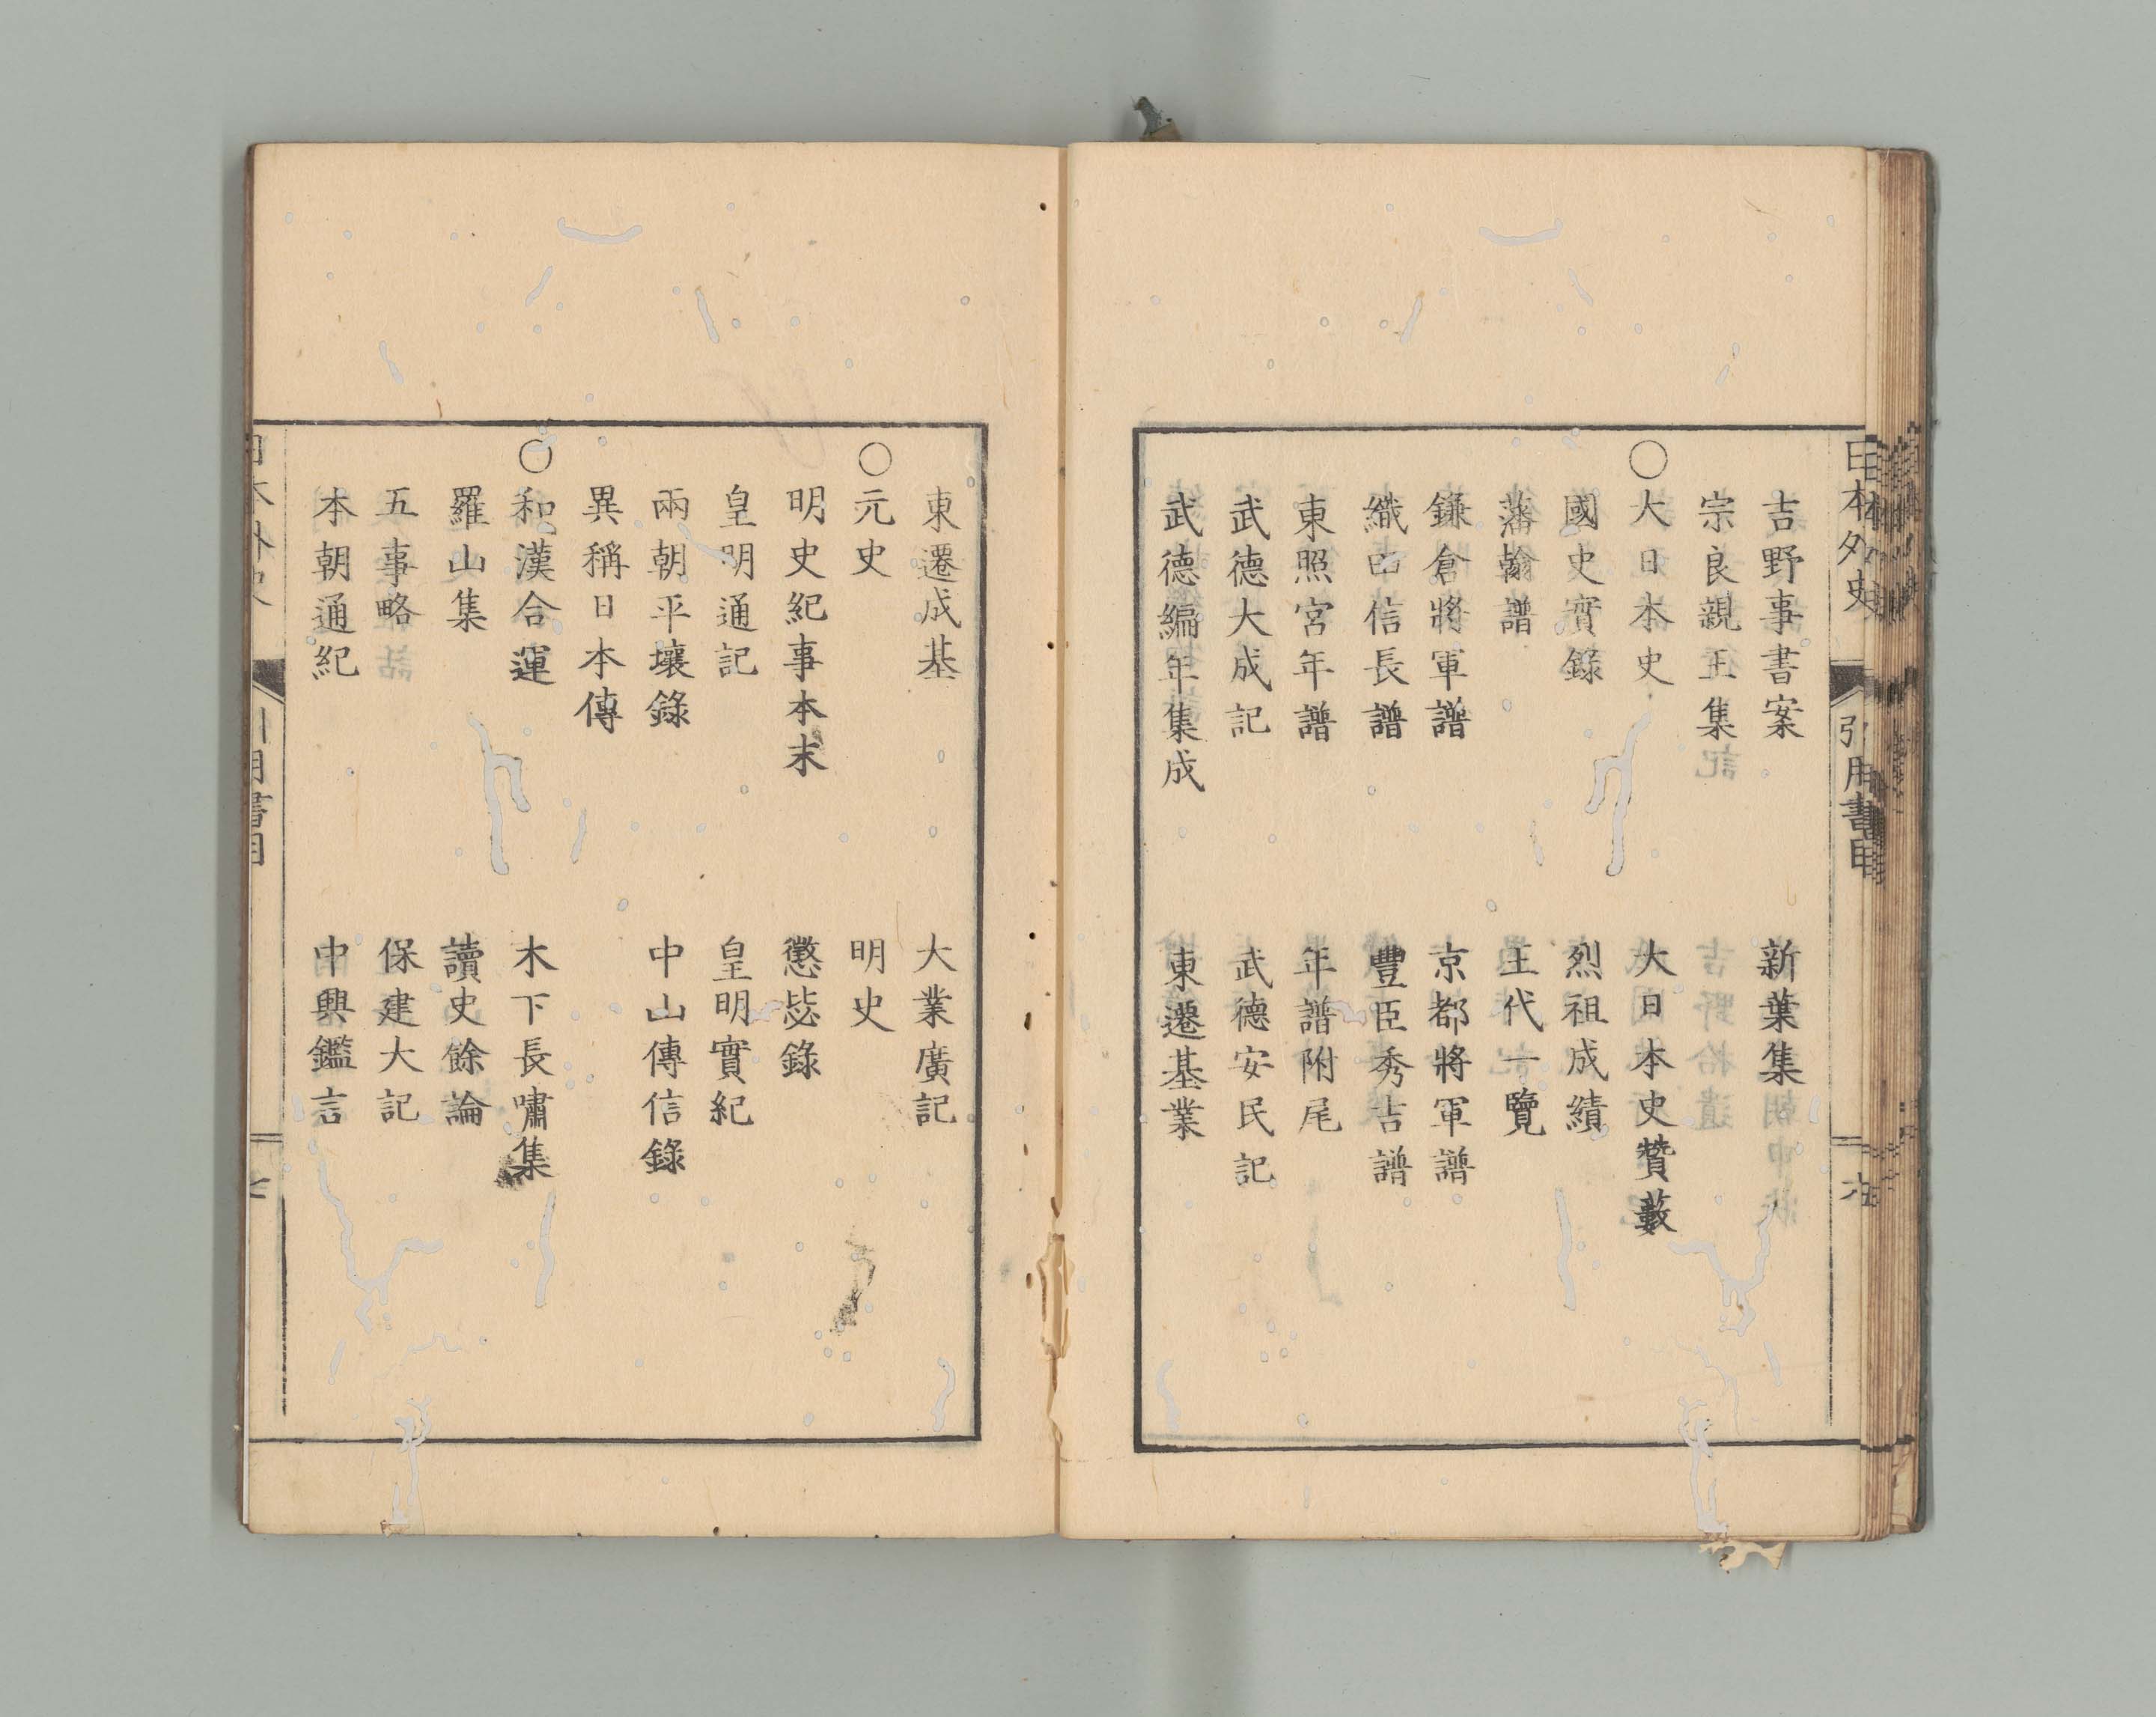 日本外史 引用書目 六
吉野事書案 新葉集
宗良親王集
○大日本史 大日本史贊藪
國史實錄 烈祖成績
藩翰譜 王代一覽
鎌倉將軍譜 京都將軍譜
織田信長譜 豐臣秀吉譜
東照宮年譜 年譜附尾
武德大成記 武德安民記
武德編年集成 東遷基業
東遷成基 大業廣記
○元史 明史
明史紀事本末 懲毖錄
皇明通記 皇明實紀
兩朝平壤錄 中山傳信錄
異稱日本傳
○和漢合運 木下長嘯集
羅山集 讀史餘論
五事略 保建大記
本朝通紀 中興鑑言
日本外史 引用書目 七